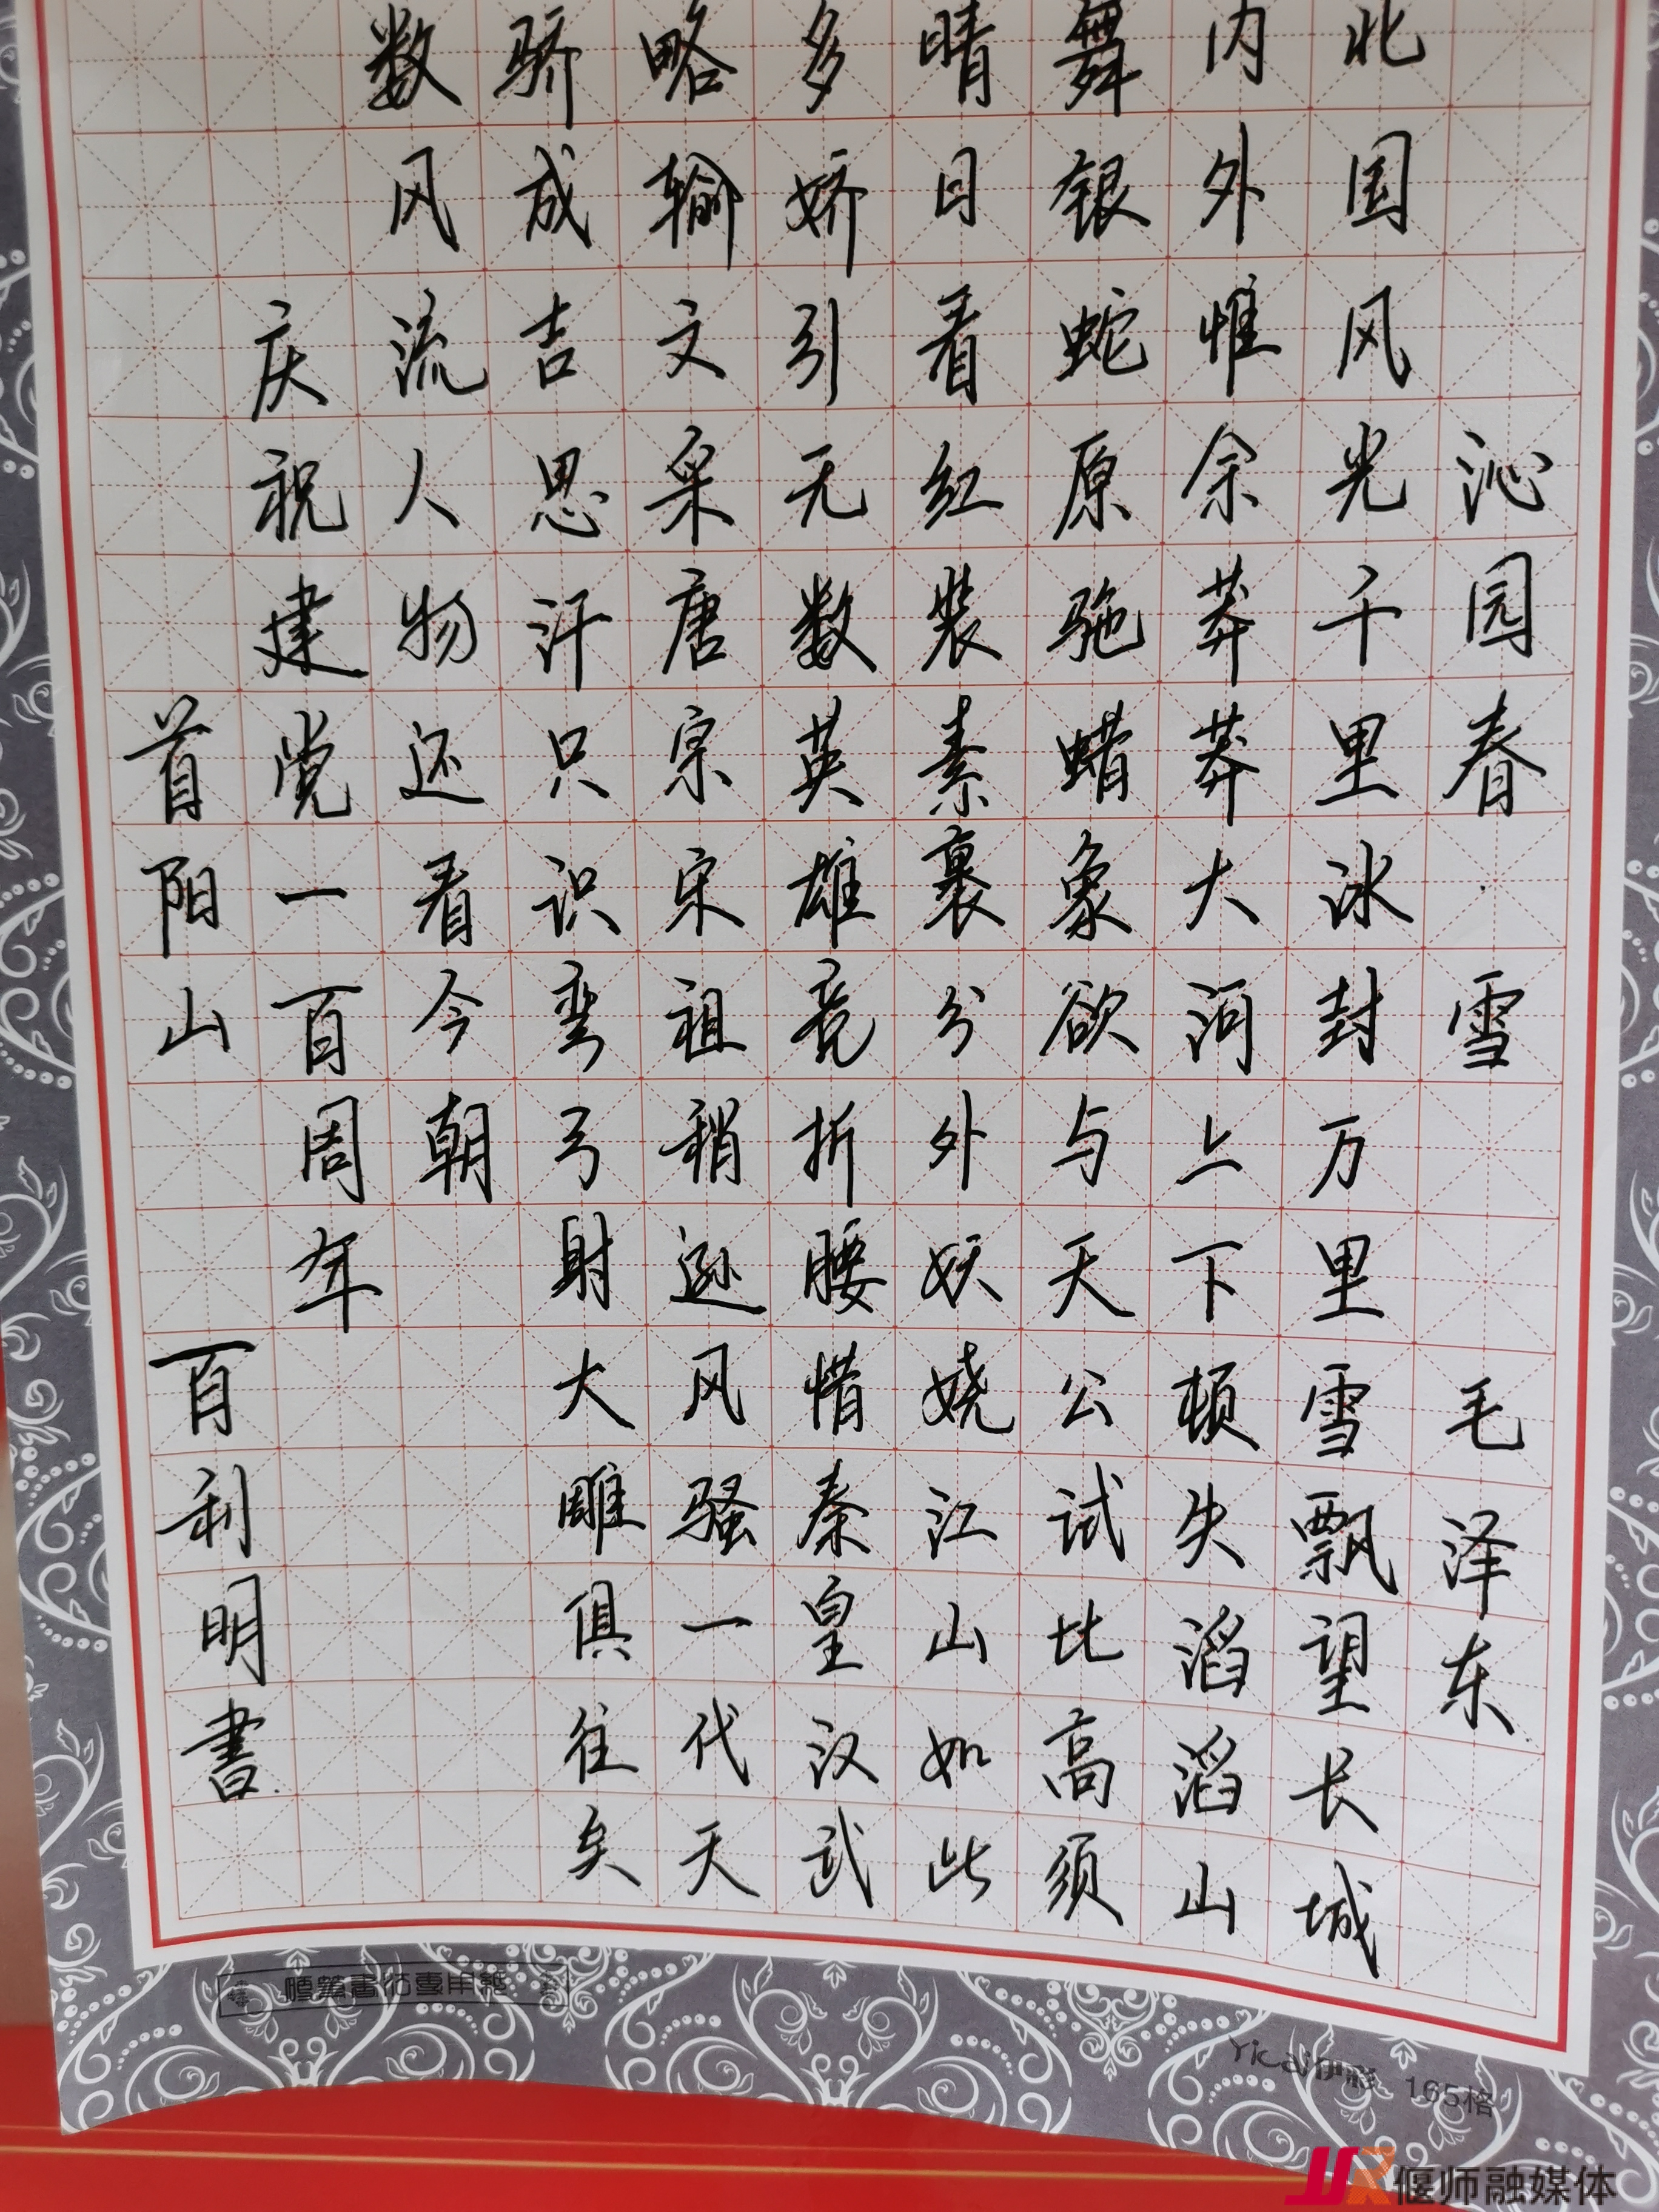 沁园春·雪 毛泽东
北国风光千里冰封万里雪飘望长城
内外惟余莽莽大河上下顿失滔滔山
舞银蛇原驰蜡象欲与天公试比高须
晴日看红装素裹分外妖娆江山如此
多娇引无数英雄竞折腰惜秦皇汉武
略输文采唐宗宋祖稍逊风骚一代天
骄成吉思汗只识弯弓射大雕俱往矣
数风流人物还看今朝
庆祝建党一百周年
首阳山 百利明書
硬筆書法專用紙
Yicai伊彩 165格
偃师融媒体